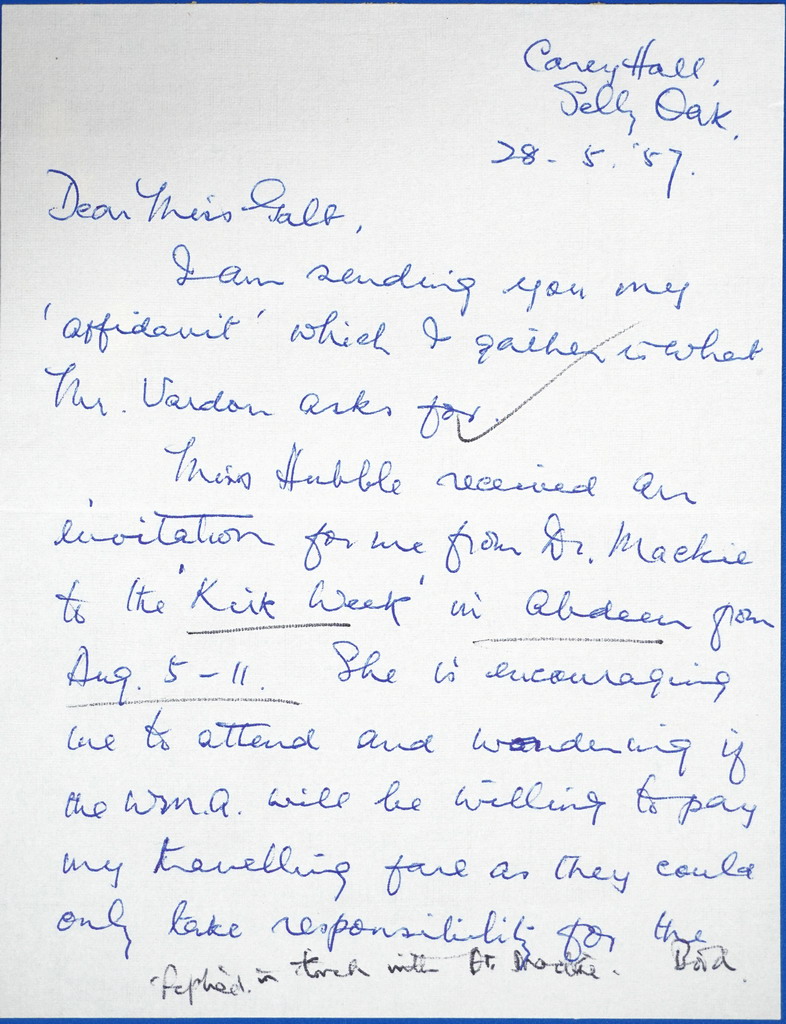 Carey Hall,
Selly Oak.
28. 5. '57.
Dear Miss Galt,
I am sending you my
'affidavit' which I gather is what
Mr. Vardon asks for.
Miss Hubble received an
invitation for me from Dr. Mackie
to the 'Kirk Week' in Abdeen from
Aug. 5-11. She is encouraging
me to attend and wondering if
the W.M.A. will be willing to pay
my travelling fare as they could
only take responsibility for the
in touch with Dr. Mackie.